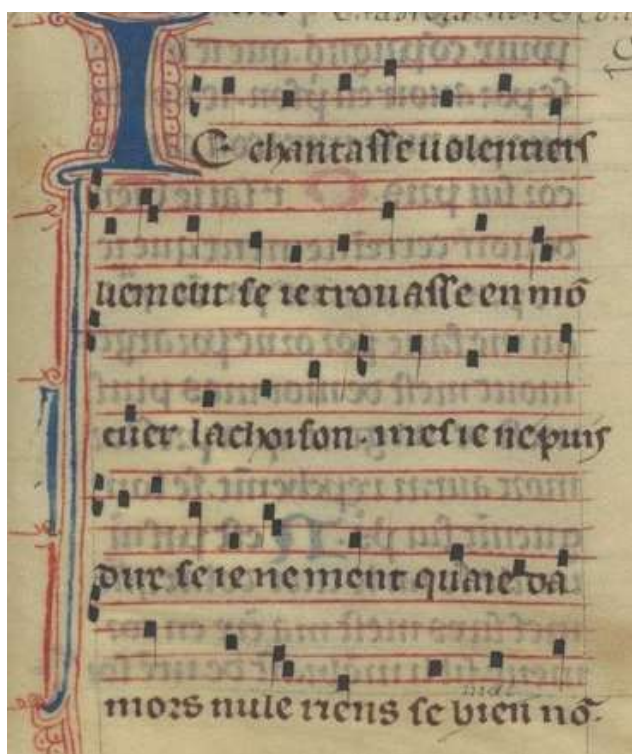 IE chantasse uolentiers
liement se ie trouasse en mō
cuer lachoison. mes ie ne puis
dire se ie ne ment quaie da
mal
mors nule riens se bien nō.